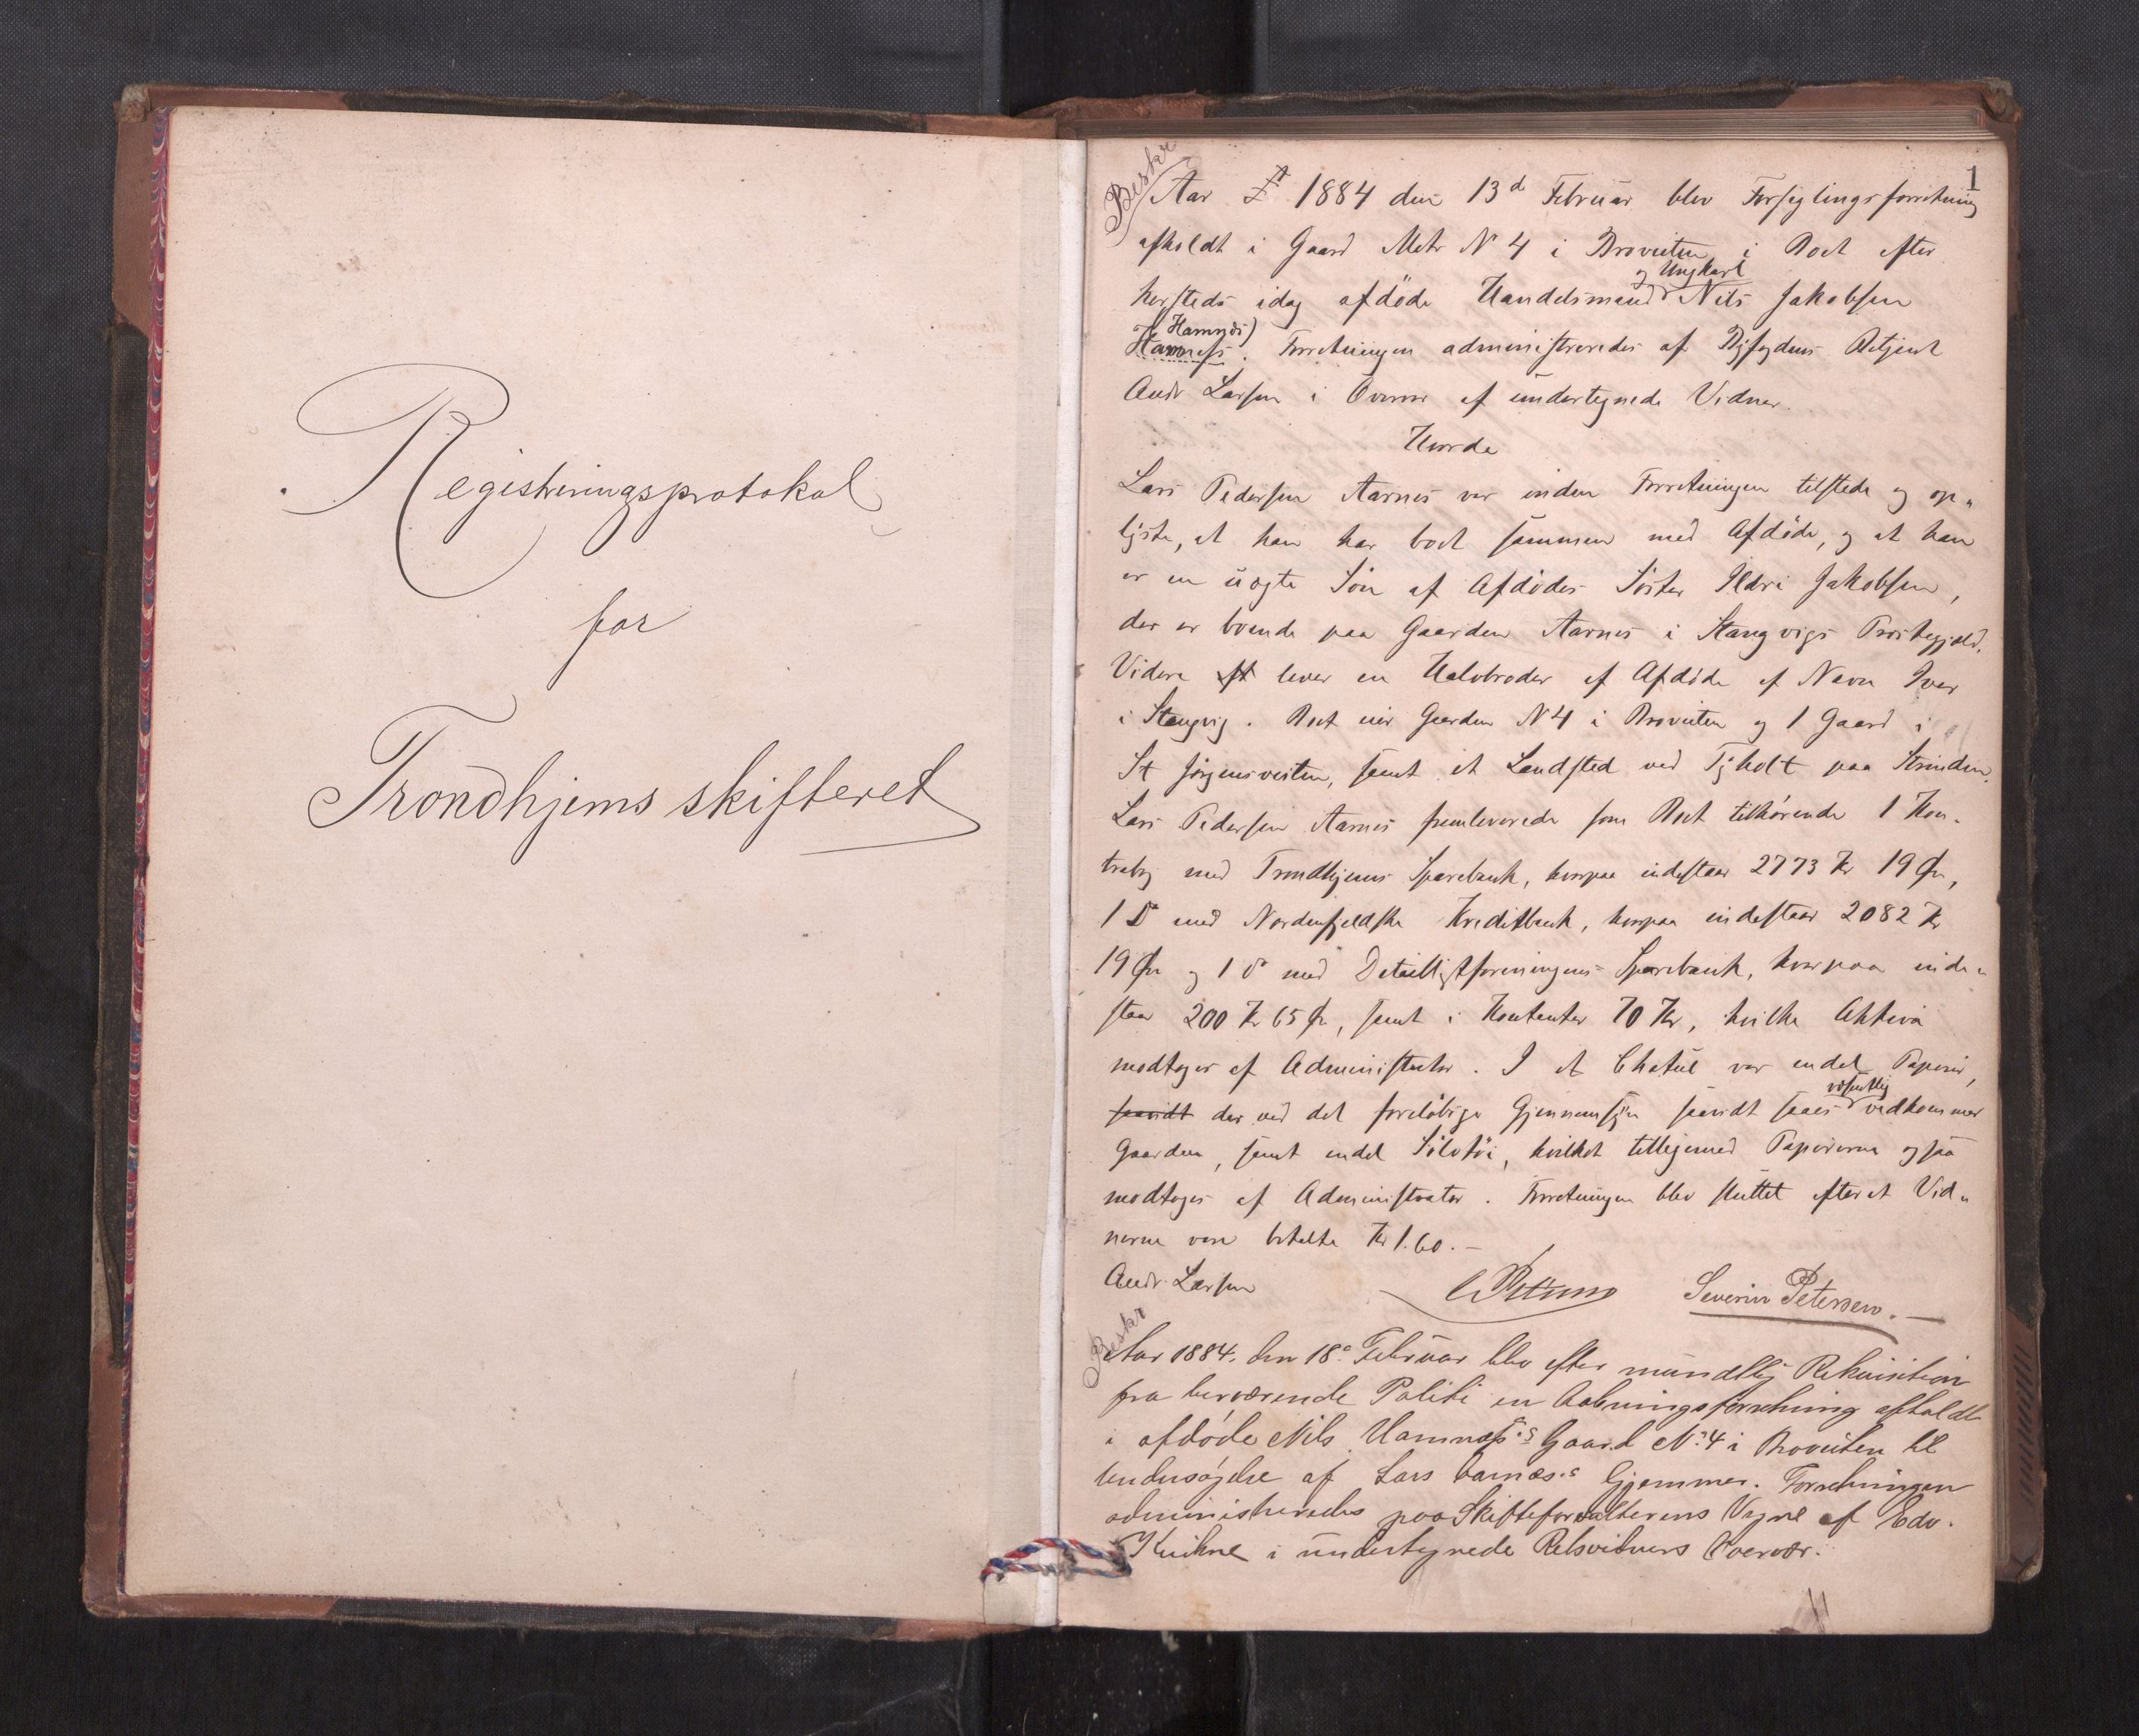 Registreringsprotokol
for
Trondhjems skifteret
1
Beskr
Aar 1884 den 13d Februar blev Forseglingsforretning
afholdt i Gaard Matr N 4 i Proveiten i Boet efter
og Ungkarl
hersteds idag afdøde Handelsmand Nils Jakobsen
Hamnæs)
Hamnæs. Forretningen administreredes af Byfogdens Betjent
Andr Larsen i Overvær af undertegnede Vidner.
Hvorda
Lars Pedersen Aarnes var under Forretningen tilstede og op„
lyste, at han har boet sammen med Afdøde, og at han
er en uægte Søn af Afdødes Søster Ildri Jakobsen,
der er boende paa Gaarden Aarnes i Stangvigs Præstegjæld.
Videre lever en Halvbroder af Afdøde af Navn Iver
i Stangvig. Boet eier Gaarden N 4 i Proveiten og 1 Gaard i
St Jørgensveiten, samt et Landsted ved Tyholt paa Strinden.
Lars Pedersen Aarnes fremleverede som Boet tilhørende 1 Kon-
trabog med Trondhjems Sparebank, hvorpaa indestaar 2773 Kr 19 Øre,
1 do med Nordenfjeldske Kreditbank, hvorpaa indestaar 2082 Kr
19 Øre og 1 do med Detaillistforeningens Sparebank, hvorpaa inde„
staar 200 Kr 65 Øre, samt i Kontanter 70 Kr, hvilke Aktiva
modtoges af Administrator. I et Chatul var endel Papirer,
væsentlig
saavidt der ved det foreløbige Gjennemsyn saavidt saaes vedkommer
Gaarden, samt endel Sølvtøi, hvilket tilligemed Papirerne ogsaa
modtoges af Administrator. Forretningen blev sluttet efterat Vid„
nerne vare betalte Kr 1.60.-
Andr. Larsen
Severin Petersen.-
Beskr
Aar 1884. den 18d Februar blev efter mundtlig Rekvisition
fra herværende Politi en Aabningsforretning afholdt
i afdøde Nils Hamnæs's Gaard No 4 i Proveiten til
Undersøgelse af Lars Aarnæs's Gjemmer. Forretningen
administreredes paa Skifteforvalterens Vegne af Edv.
Kuihne i undertegnede Retsvidners Overvær.